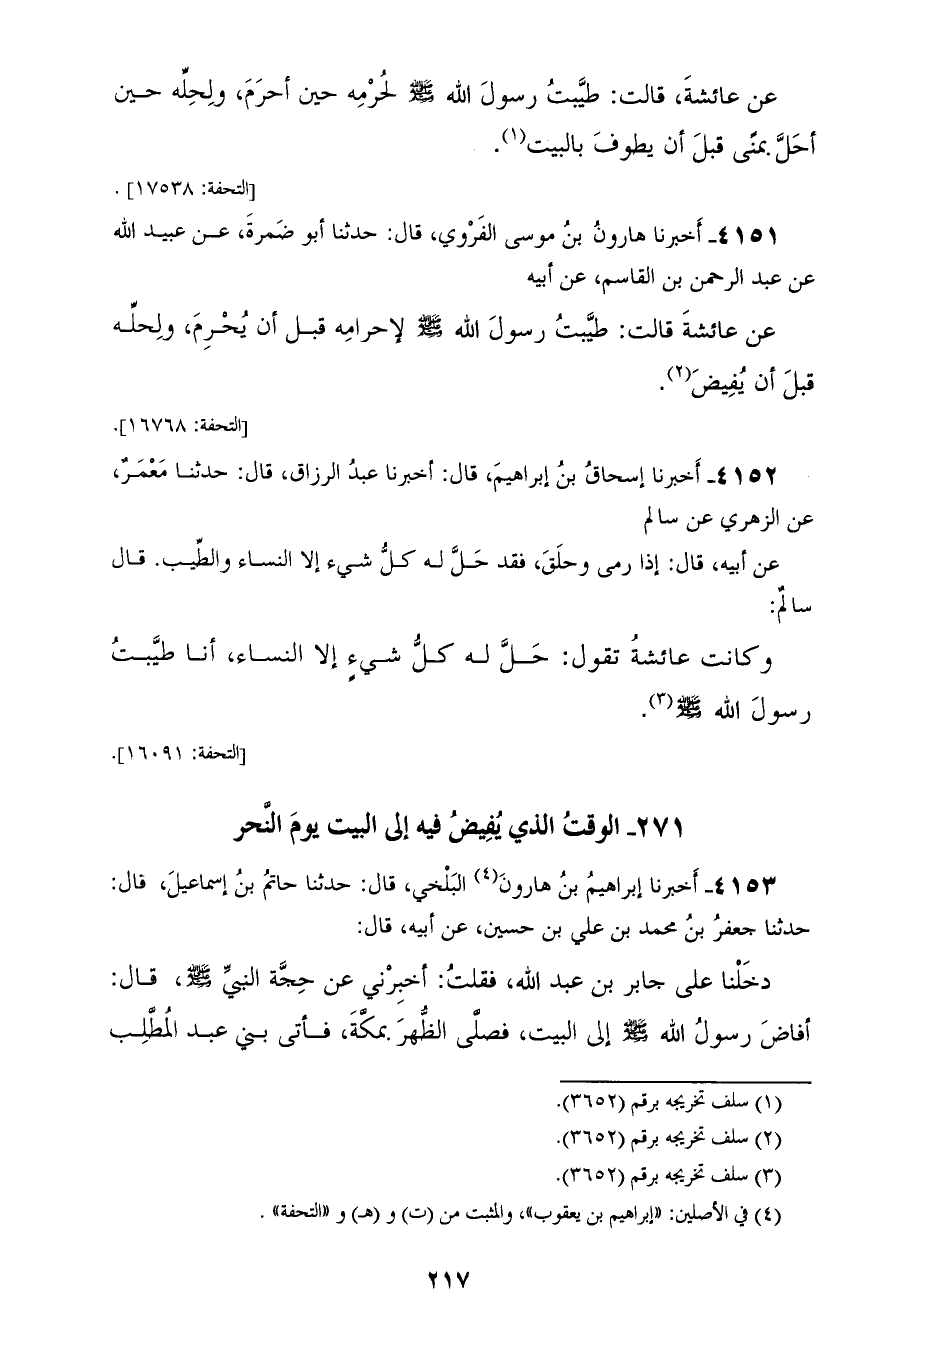 عن عائشةَ، قالت: طيَّبتُ رسولَ الله ﷺ لحُرْمِه حين أحرَمَ، ولِحِلِّه حـين
أحَلَّ بمنًى قبلَ أن يطوفَ بالبيت(١).
[التحفة: ١٧٥٣٨] .
٤١٥١ـ أَخبرنا هارونُ بنُ موسى الفَرْوي، قال: حدثنا أبو ضَمرةَ، عـن عبيـد الله
عن عبد الرحمن بن القاسم، عن أبيه
عن عائشةَ قالت: طيَّبتُ رسولَ الله ﷺ لإحرامِه قبـل أن يُحْـرِمَ، ولِحلِّـه
قبلَ أن يُفِيضَ(٢).
[التحفة: ١٦٧٦٨].
٤١٥٢ـ أَخبرنا إسحاقُ بنُ إبراهيمَ، قال: أخبرنا عبدُ الرزاق، قال: حدثنـا مَعْمَـرٌ،
عن الزهري عن سالم
عن أبيه، قال: إذا رمى وحلَقَ، فقد حَـلَّ لـه كـلُّ شـيء إلا النسـاء والطِّيـب. قـال
سالمٌ:
وكانت عائشةُ تقول: حَــلَّ لــه كــلُّ شــيءٍ إلا النسـاء، أنـا طيَّبـتُ
رسولَ الله ﷺ(٣).
[التحفة: ١٦٠٩١].
٢٧١ـ الوقتُ الذي يُفِيضُ فيه إلى البيت يومَ النَّحر
٤١٥٣ـ أَخبرنا إبراهيمُ بنُ هارونَ(٤) البَلْخي، قال: حدثنا حاتمُ بنُ إسماعيلَ، قال:
حدثنا جعفرُ بنُ محمد بن علي بن حسين، عن أبيه، قال:
دخَلْنا على جابر بن عبد الله، فقلتُ: أخبِرْني عن حِجَّة النبيِّ ﷺ، قـال:
أفاضَ رسولُ الله ﷺ إلى البيت، فصلَّى الظُّهرَ بمكَّةَ، فـأتى بـني عبـد المُطَّلِب
(١) سلف تخريجه برقم (٣٦٥٢).
(٢) سلف تخريجه برقم (٣٦٥٢).
(٣) سلف تخريجه برقم (٣٦٥٢).
(٤) في الأصلين: «إبراهيم بن يعقوب»، والمثبت من (ت) و (هـ) و «التحفة» .
٢١٧